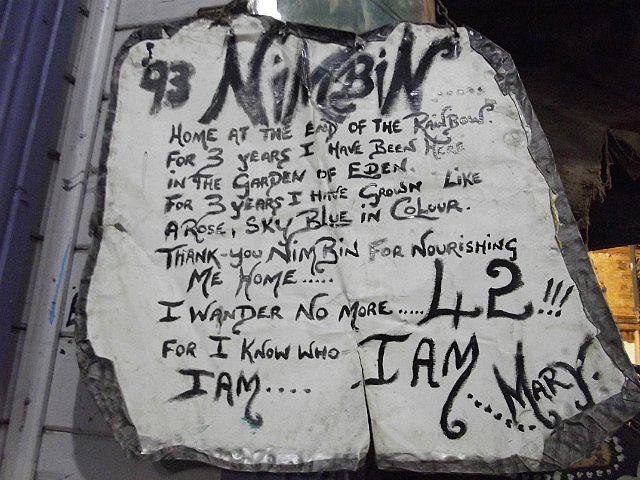 '93 NIMBIN ......
HOME AT THE END OF THE RAINBOW.
FOR 3 YEARS I HAVE BEEN HERE
IN THE GARDEN OF EDEN.
FOR 3 YEARS I HAVE GROWN LIKE
A ROSE, SKY BLUE IN COLOUR.
THANK-YOU NIMBIN FOR NOURISHING
ME HOME.....
I WANDER NO MORE ..... 42!!!
FOR I KNOW WHO
I AM.... I AM
...... MARY.